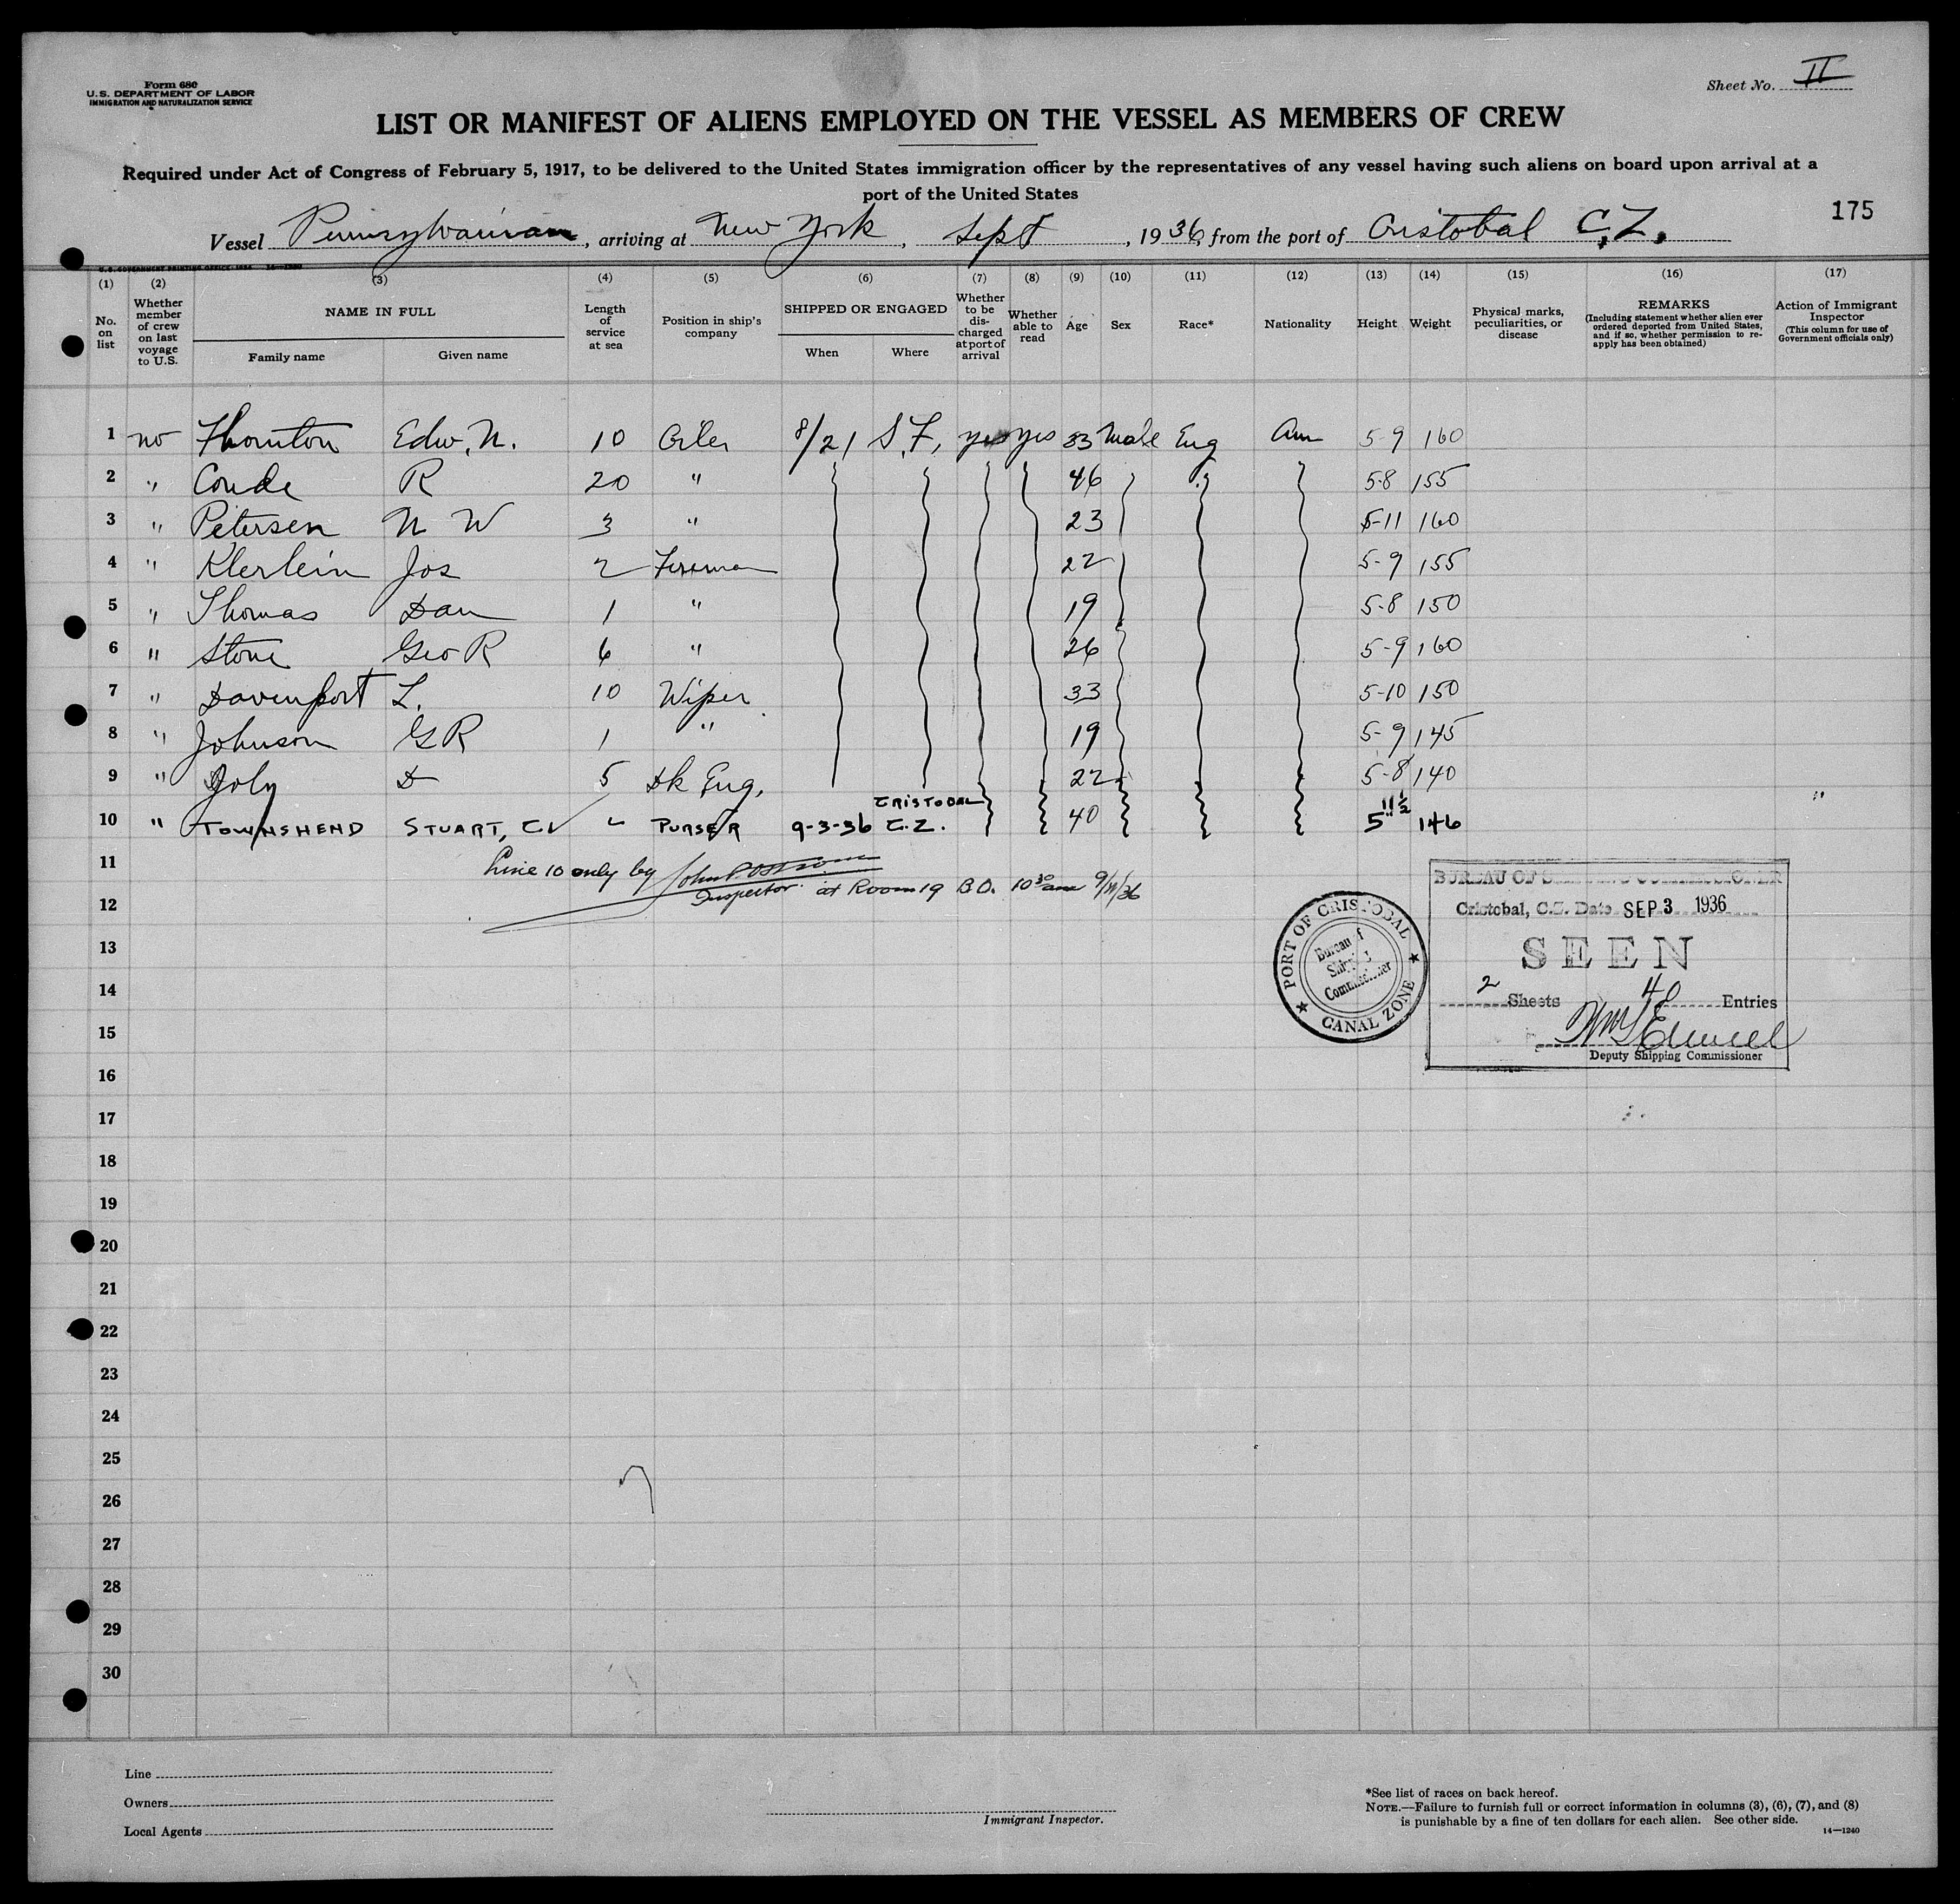 Form 680
U.S. DEPARTMENT OF LABOR
IMMIGRATION AND NATURALIZATION SERVICE
Sheet No. II
LIST OR MANIFEST OF ALIENS EMPLOYED ON THE VESSEL AS MEMBERS OF CREW
Required under Act of Congress of February 5, 1917, to be delivered to the United States immigration officer by the representatives of any vessel having such aliens on board upon arrival at a
port of the United States
175
Vessel Pennsylvanian, arriving at New York, Sept, 1936, from the port of Cristobal C.Z.
(1) (2) (3) (4) (5) (6) (7) (8) (9) (10) (11) (12) (13) (14) (15) (16) (17)
No. on list
Whether member of crew on last voyage to U.S.
NAME IN FULL
Family name
Given name
Length of service at sea
Position in ship's company
SHIPPED OR ENGAGED
When
Where
Whether to be discharged at port of arrival
Whether able to read
Age
Sex
Race*
Nationality
Height
Weight
Physical marks, peculiarities, or disease
REMARKS
(Including statement whether alien ever ordered deported from United States, and if so, whether permission to reapply has been obtained)
Action of Immigrant Inspector
(This column for use of Government officials only)
1 no Thornton Edw. N. 10 Oiler 8/21 S.F. yes yes 33 Male Eng Am 5-9 160
2 " Conde R 20 " 46 5-8 155
3 " Petersen N W 3 " 23 5-11 160
4 " Klerlein Jos 2 Fireman 22 5-9 155
5 " Thomas Dan 1 " 19 5-8 150
6 " Stone Geo R 6 " 26 5-9 160
7 " Davenport L. 10 Wiper 33 5-10 150
8 " Johnson G R 1 " 19 5-9 145
9 " Joly D 5 Dk Eng. 22 5-8 140
10 " TOWNSHEND STUART, C. PURSER 9-3-36 CRISTOBAL C.Z. 40 5'11½ 146
11
Line 10 only by
Inspector at Room 19 B.O. 10 30 am 9/11/36
12
13
14
15
16
17
18
19
20
21
22
23
24
25
26
27
28
29
30
PORT OF CRISTOBAL
Bureau of Shipping Commissioner
CANAL ZONE
BUREAU OF SHIPPING COMMISSIONER
Cristobal, C.Z. Date SEP 3 1936
SEEN
2 Sheets 48 Entries
Deputy Shipping Commissioner
Line
Owners
Local Agents
Immigrant Inspector.
*See list of races on back hereof.
NOTE.—Failure to furnish full or correct information in columns (3), (6), (7), and (8)
is punishable by a fine of ten dollars for each alien. See other side.
14—1240